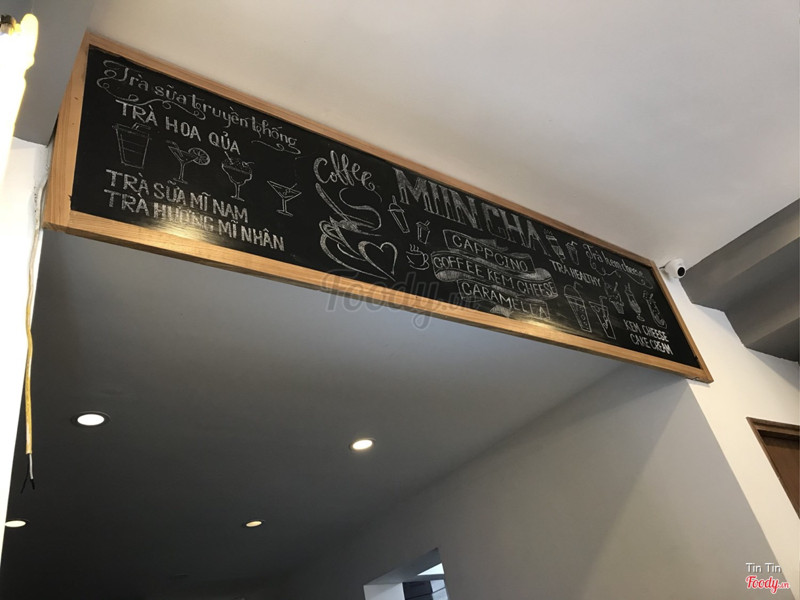 Trà sữa truyền thống
TRÀ HOA QỦA
TRÀ SỮA MĨ NAM
TRÀ HƯƠNG MĨ NHÂN
Coffee
MIIN CHA
CAPPCINO
COFFEE KEM CHEESE
CARAMELLA
TRÀ HEALTHY
Trà kem cheese
KEM CHEESE
CAKE CREAM
Foody.vn
Tin Tin
Foody.vn